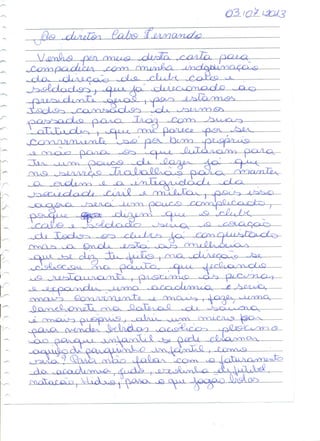 03.07.2013
Ao diretor Cabo Fernando
Venho por meio desta carta para
compadicer com minha indguinação
da direção do clube cabo e
soldados, que já direcionado ao
presidente geral, pois estamos
todos cansados de sermos
passado para traz com suas
atitudes, que me parece por ser
conveniente so por bem propio
e não para os que lutaram para
ter um pouco de lazer já que
no serviço trabalhão para manter
a ordem e a intigridade da
sociedade civil e militar, pois isso
agora sera um pouco complicado,
porque dizem que o clube
cabo e soldado seria o coração
de todos os clubes já conquistados
mas a onde esta as melhorias
que se diz ter feito, na direção se
colocou na pauta que fechando
o restaurante, procimo as picinas,
e expander uma academia e seria
mais conveniente e mais, fazer uma
lanchonete na lateral da sauna,
e mais propio, abrir um micro bar
para vender bebidas acolicas plocimo
ao parque infantil se pode chamar
aquilo di parquinho infantil, como
sera? Para não falar com o faturamento
da academia, judo, escolinha de futebol,
natacao, hidro, para o que jogar